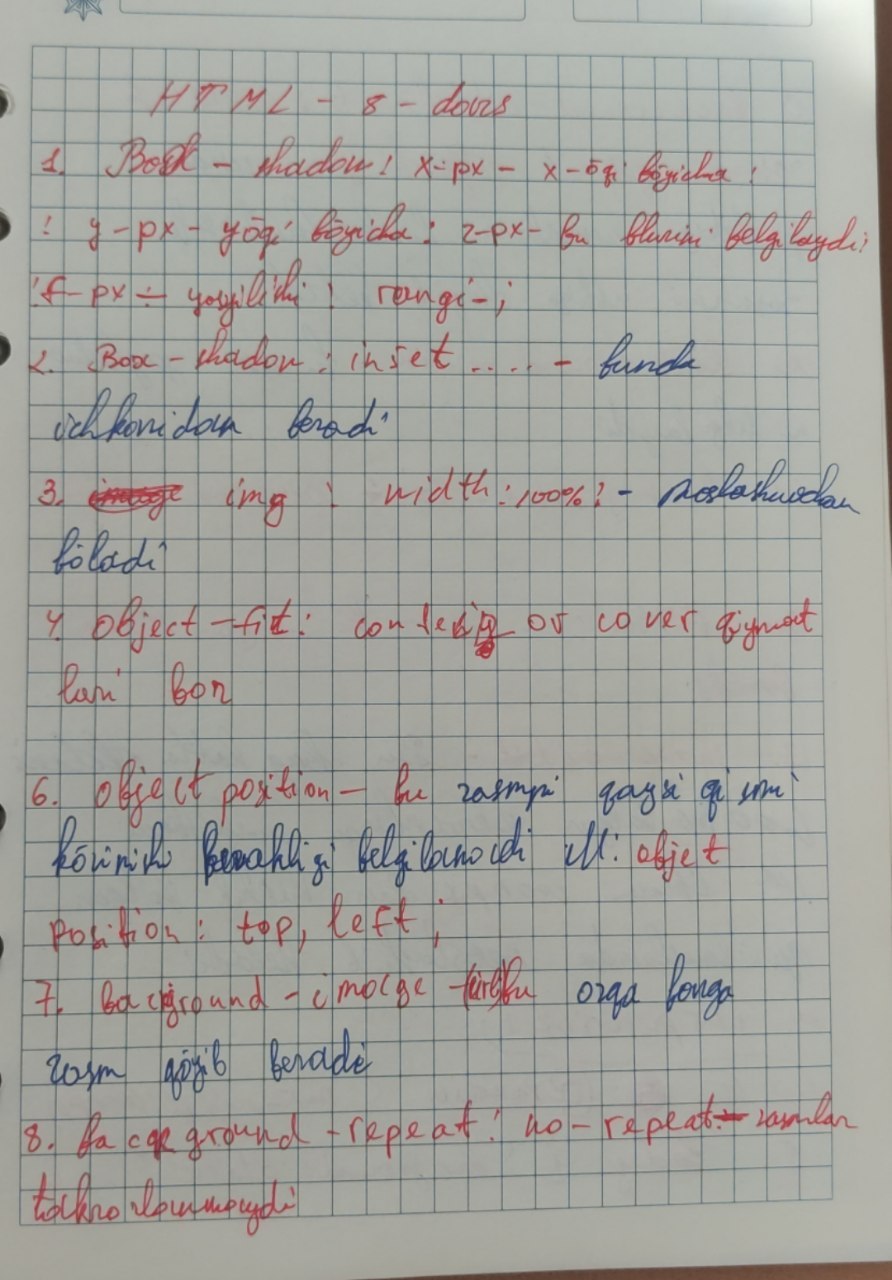 HTML - 8 - dars
1. Box - shadow: x-px - x-õqi bõyicha :
: y-px - yõqi bõyicha : z-px - bu blurini belgilaydi;
: f-px - yoyilishi : rangi - ;
2. Box - shadow : inset .... - bunda
ichkaridan beradi
3. img : width : 100% : - moslashuvchan
bõladi
4. object - fit : or cover qiymat
lari bor
6. object position - bu rasmni qaysi qismi
kõrinish belgilanadi M: objet
position : top, left ;
7. background - imacge - bu orqa fonga
rasm qõyib beradi
8. background - repeat : no - repeat - rasmlar
takrorlanmaydi